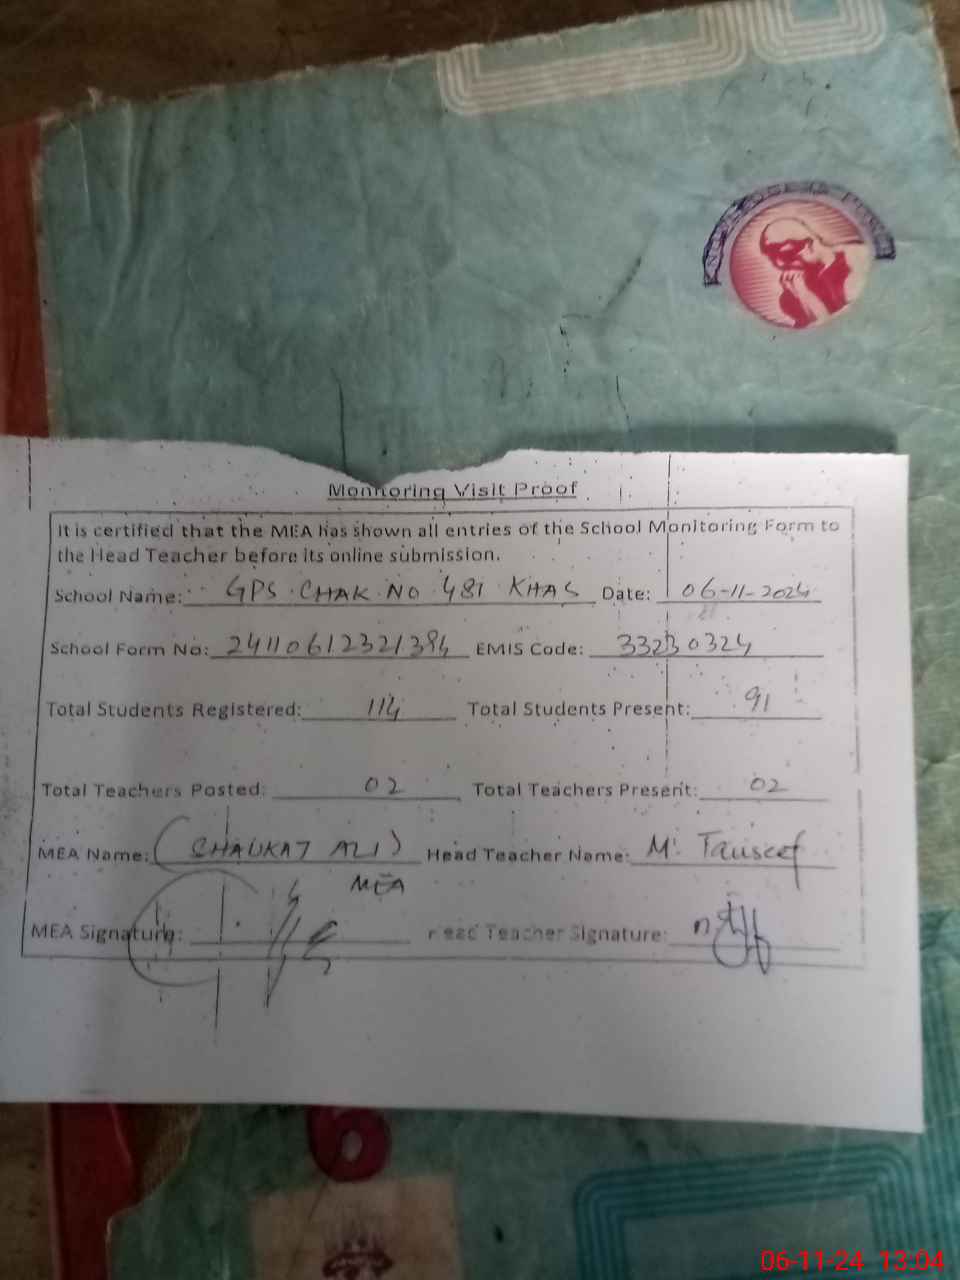 Monitoring Visit Proof
It is certified that the MEA has shown all entries of the School Monitoring Form to
the Head Teacher before its online submission.
School Name: GPS CHAK NO 481 KHAS Date: 06-11-2024
School Form No: 24110612321384 EMIS Code: 33230324
Total Students Registered: 114 Total Students Present: 91
Total Teachers Posted: 02 Total Teachers Present: 02
MEA Name: (SHAUKAT ALI) Head Teacher Name: M. Tauseef
MEA
MEA Signature: Head Teacher Signature:
6
06-11-24 13:04